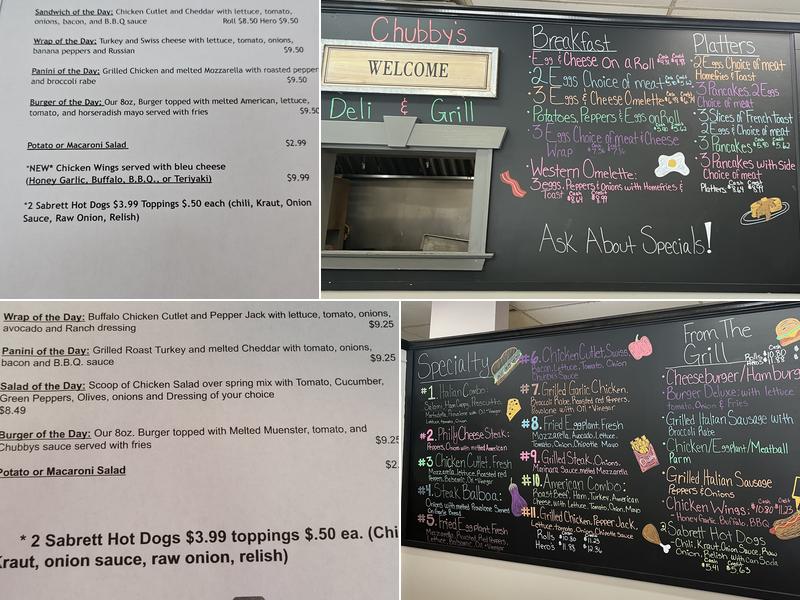 Sandwich of the Day: Chicken Cutlet and Cheddar with lettuce, tomato,
onions, bacon, and B.B.Q sauce Roll $8.50 Hero $9.50
Wrap of the Day: Turkey and Swiss cheese with lettuce, tomato, onions,
banana peppers and Russian $9.50
Panini of the Day: Grilled Chicken and melted Mozzarella with roasted pepper
and broccoli rabe $9.50
Burger of the Day: Our 8oz, Burger topped with melted American, lettuce,
tomato, and horseradish mayo served with fries $9.50
Potato or Macaroni Salad $2.99
*NEW* Chicken Wings served with bleu cheese
(Honey Garlic, Buffalo, B.B.Q., or Teriyaki) $9.99
*2 Sabrett Hot Dogs $3.99 Toppings $.50 each (chili, Kraut, Onion
Sauce, Raw Onion, Relish)
Chubby's
WELCOME
Deli & Grill
Breakfast
Egg & Cheese On a Roll
2 Eggs Choice of meat
3 Eggs & Cheese Omelette
Potatoes, Peppers & Eggs on Roll
3 Eggs Choice of meat & Cheese
Wrap
Western Omelette:
3 eggs, Peppers & Onions with Homefries &
Toast Cash $8.64 Credit $8.99
Ask About Specials!
Platters
2 Eggs Choice of meat
Homefries & Toast
3 Pancakes 2 Eggs
Choice of meat
3 Slices of French toast
2 Eggs Choice of meat
3 Pancakes $5.40 $5.62
3 Pancakes with Side
Choice of meat
Platters Cash Credit
Wrap of the Day: Buffalo Chicken Cutlet and Pepper Jack with lettuce, tomato, onions,
avocado and Ranch dressing $9.25
Panini of the Day: Grilled Roast Turkey and melted Cheddar with tomato, onions,
bacon and B.B.Q. sauce $9.25
Salad of the Day: Scoop of Chicken Salad over spring mix with Tomato, Cucumber,
Green Peppers, Olives, onions and Dressing of your choice
$8.49
Burger of the Day: Our 8oz. Burger topped with Melted Muenster, tomato, and
Chubbys sauce served with fries $9.25
Potato or Macaroni Salad $2.
* 2 Sabrett Hot Dogs $3.99 toppings $.50 ea. (Chi
Kraut, onion sauce, raw onion, relish)
Specialty
#1. Italian Combo:
Salami, Ham Cappy, Prosciutto,
Mozzarella, Provolone with Oil + Vinegar
Lettuce, tomato, Onion
#2. Philly Cheese Steak:
Peppers, Onion with melted American
#3 Chicken Cutlet, Fresh
Mozzarella, lettuce, Roasted red
Peppers, Balsamic, Oil + Vinegar
#4. Steak Balboa:
Onions with melted Provolone Served
On Garlic Bread
#5. Fried Eggplant, Fresh
Mozzarella, Roasted Red Peppers,
Lettuce, Balsamic, Oil + Vinegar
#6. Chicken Cutlet, Swiss,
Bacon, Lettuce, Tomato, Onion
Chubbys Sauce
#7. Grilled Garlic Chicken,
Broccoli Rabe, Roasted red peppers,
Provolone with Oil + Vinegar
#8. Fried Eggplant, Fresh
Mozzarella, Avocado, Lettuce,
Tomato, Onion, Chipotle Mayo
#9. Grilled Steak, Onions,
Marinara Sauce, melted Mozzarella
#10. American Combo:
Roast Beef, Ham, Turkey, American
Cheese, with Lettuce, Tomato, Onion, Mayo
#11. Grilled Chicken, Pepper Jack,
Lettuce, tomato, Onion, Chipotle Sauce
Rolls $10.80 $11.23
Hero's $11.88 $12.36
From The
Grill
Cash
Rolls $10.80
Hero's $11.88
Cheeseburger/Hamburg
Burger Deluxe: with lettuce
tomato, Onion & Fries
Grilled Italian Sausage with
Broccoli Rabe
Chicken/Eggplant/Meatball
Parm
Grilled Italian Sausage
Peppers & Onions
Chicken Wings: Cash $10.80 Credit $11.23
Honey Garlic, Buffalo, BBQ
2 Sabrett Hot Dogs
Chili, Kraut, Onion Sauce, Raw
Onion, Relish with Can Soda
Cash $5.41 Credit $5.63